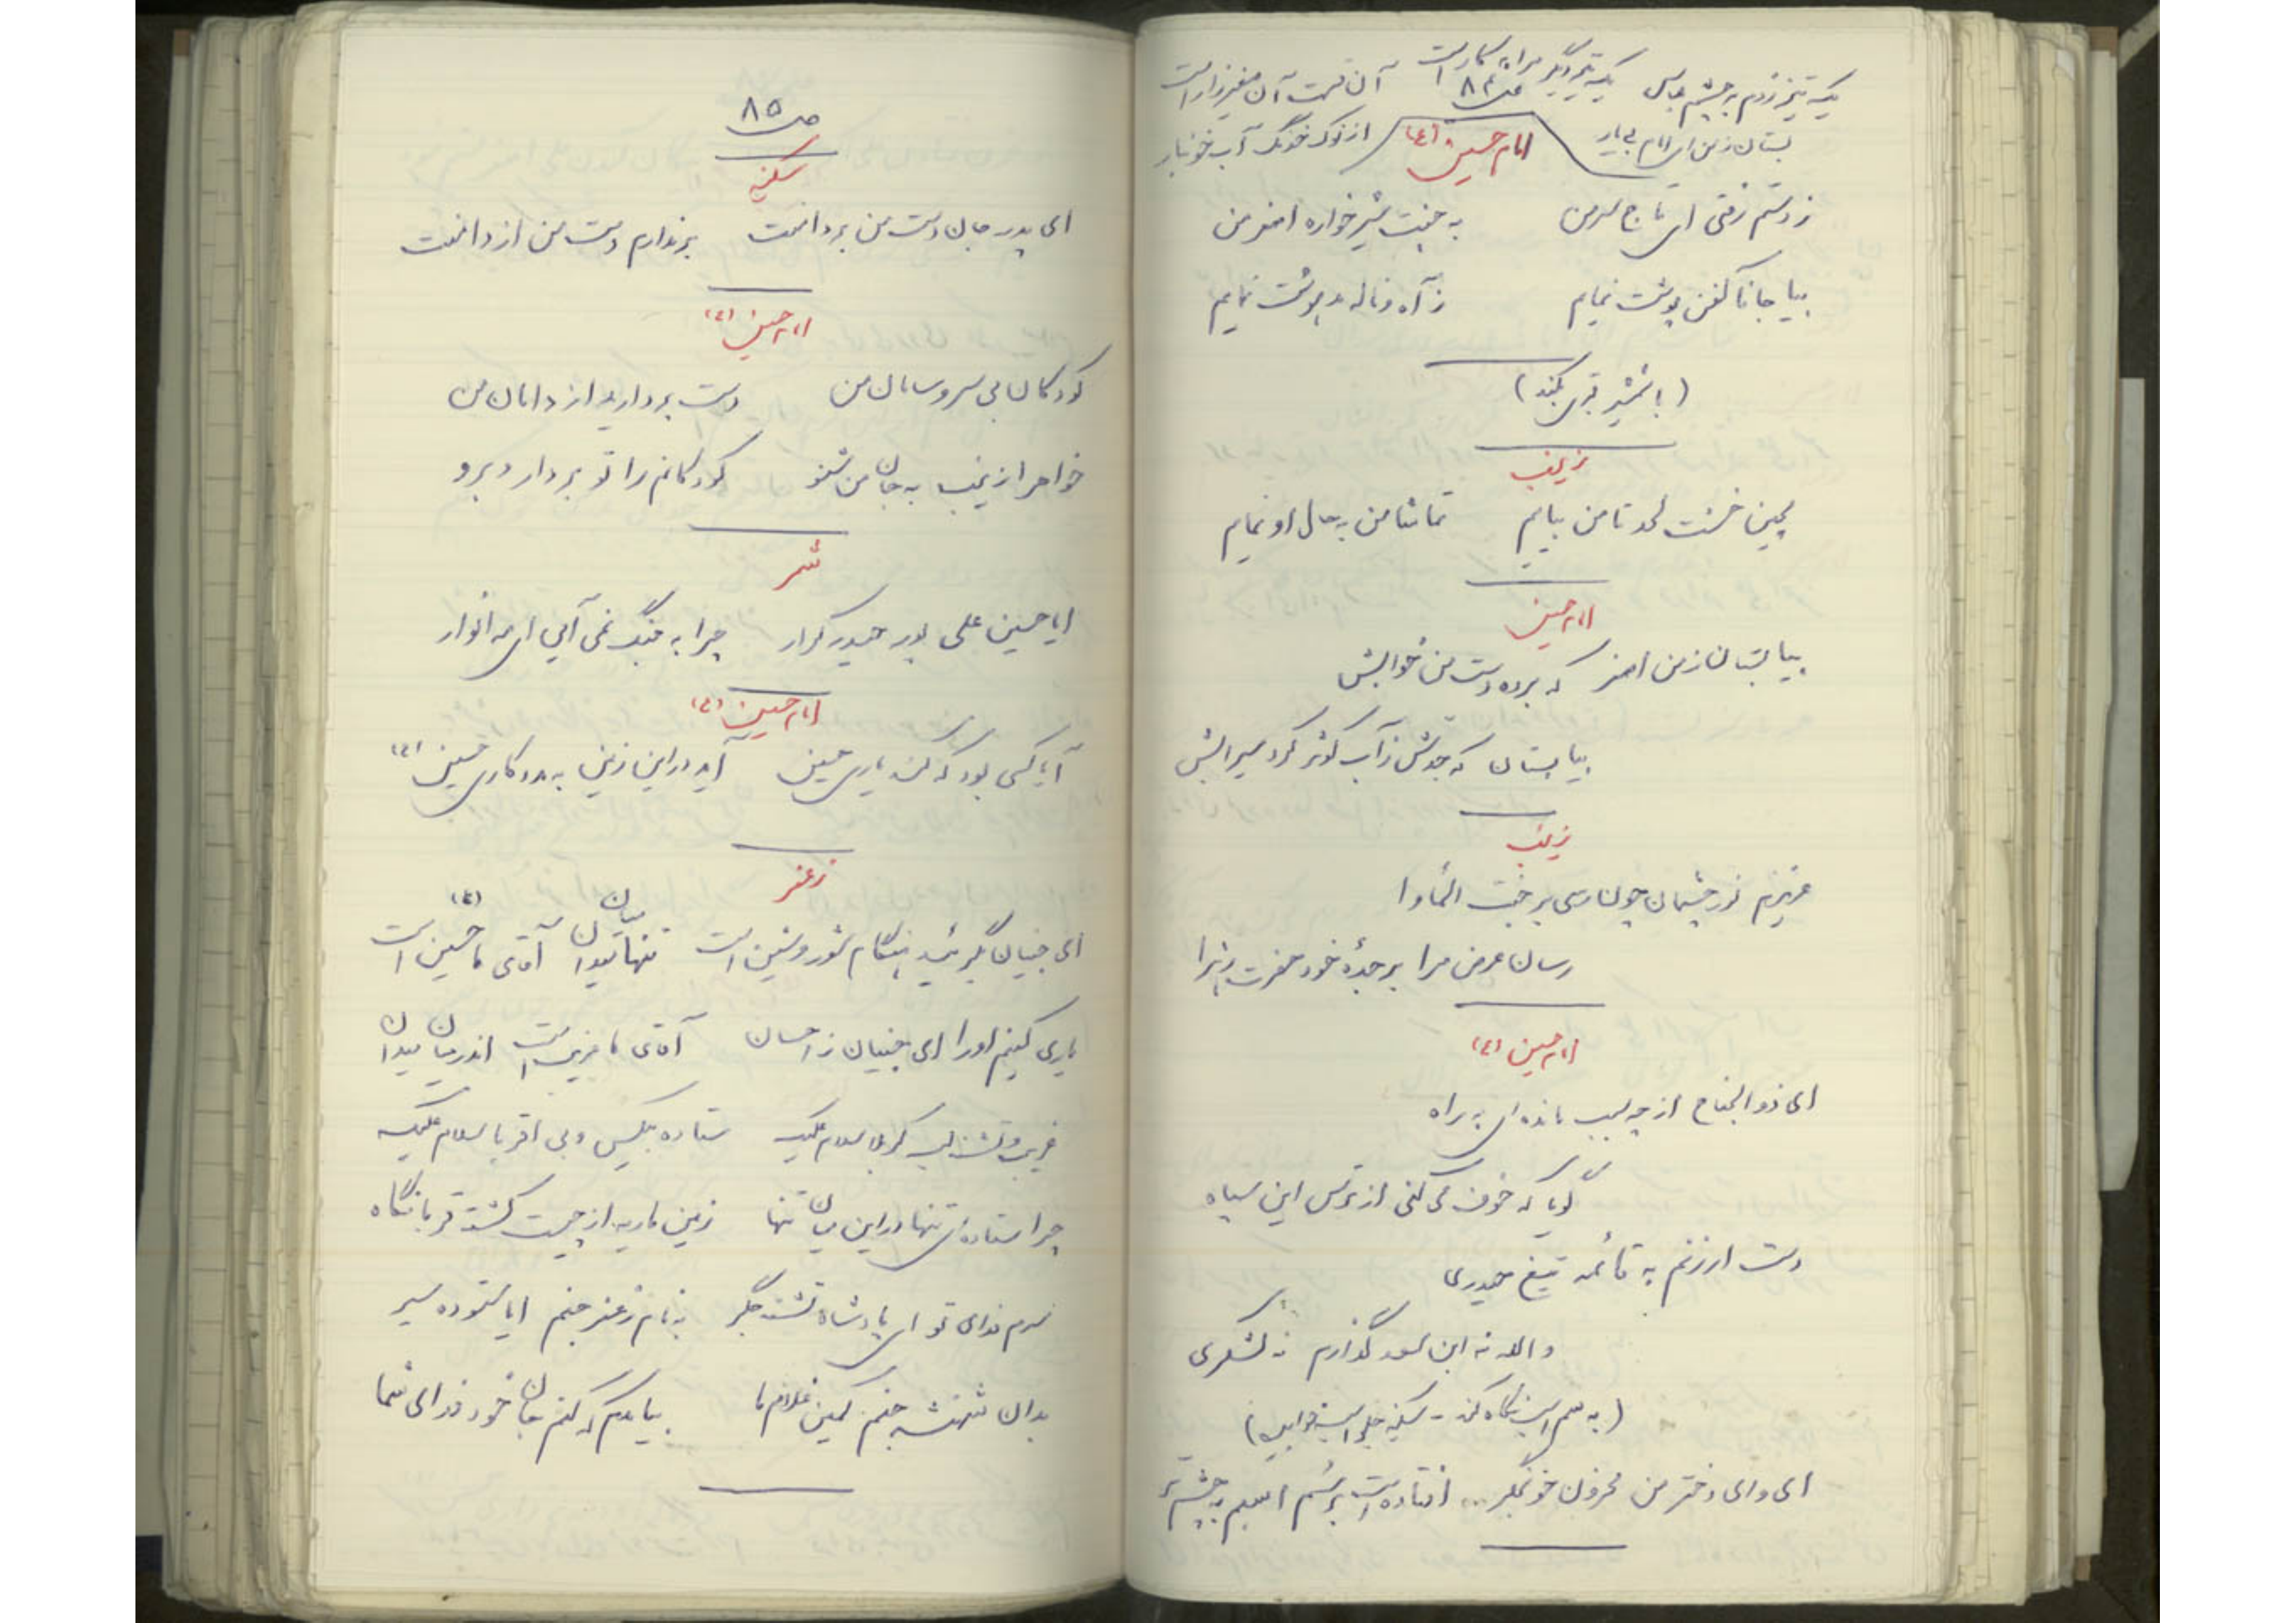 یک تیر زدم به چشم عباس یک تیر دگر مرا به کار است آن قسمت آن صغیر زار است
ص ۸۴
بستان ز من ای امام بی یار از نوک خدنگ آب خونبار
امام حسین (ع)
ز دستم رفتی ای تاج سر من به جنت شیرخواره اصغر من
بیا جانا کفن پوشت نمایم ز آه و ناله مدهوشت نمایم
(با شمشیر قبر بکند)
زینب
مچین خشت لحد تا من بیایم تماشا من به حال او نمایم
امام حسین
بیا بستان ز من اصغر که برده دست من خوابش
بیا بستان که جدش ز آب کوثر کرد سیرابش
زینب
عزیزم نور چشمان چون رسی بر جنت المأوا
رسان عرض مرا بر جدهٔ خود حضرت زهرا
امام حسین (ع)
ای ذوالجناح از چه سبب مانده ای به راه
گویا که خوف می کنی از ترس این سپاه
دست ار زنم به قائمه تیغ حیدری
والله نه ابن سعد گذارم نه لشکری
(به سم اسب نگاه کند - سکینه جلو اسب خوابیده)
ای وای دختر من محزون خونجگر... افتاده است بر سُم اسبم به چشم تر
ص ۸۵
سکینه
ای پدر جان دست من بر دامنت برندارم دست من از دامنت
امام حسین (ع)
کودکان بی سر و سامان من دست بردارید از دامان من
خواهرا زینب به جان من شنو کودکانم را تو بردار و برو
شمر
ایا حسین علی پور حیدر کرار چرا به جنگ نمی آیی ای مه انوار
امام حسین (ع)
آیا کسی بود که کند یاری حسین آید در این زمین به مددکاری حسین (ع)
زعفر
ای جنیان بگریید هنگام شور و شین است تنها میان میدان آقای ما حسین (ع) است
یاری کنیم او را ای جنیان ز احسان آقای ما غریب است اندر میان میدان
غریب و تشنه لب کربلا سلام علیک ستاده بیکس و بی اقربا سلام علیک
چرا ستاده ای تنها در این میان تنها زمین ماریه از چیست گشته قربانگاه
سرم فدای تو ای پادشاه تشنه جگر به نام زعفر جنم ایا ستوده سیر
بدان شهنشه جنم کمین غلام ما بیامدم که کنم جان خود فدای شما